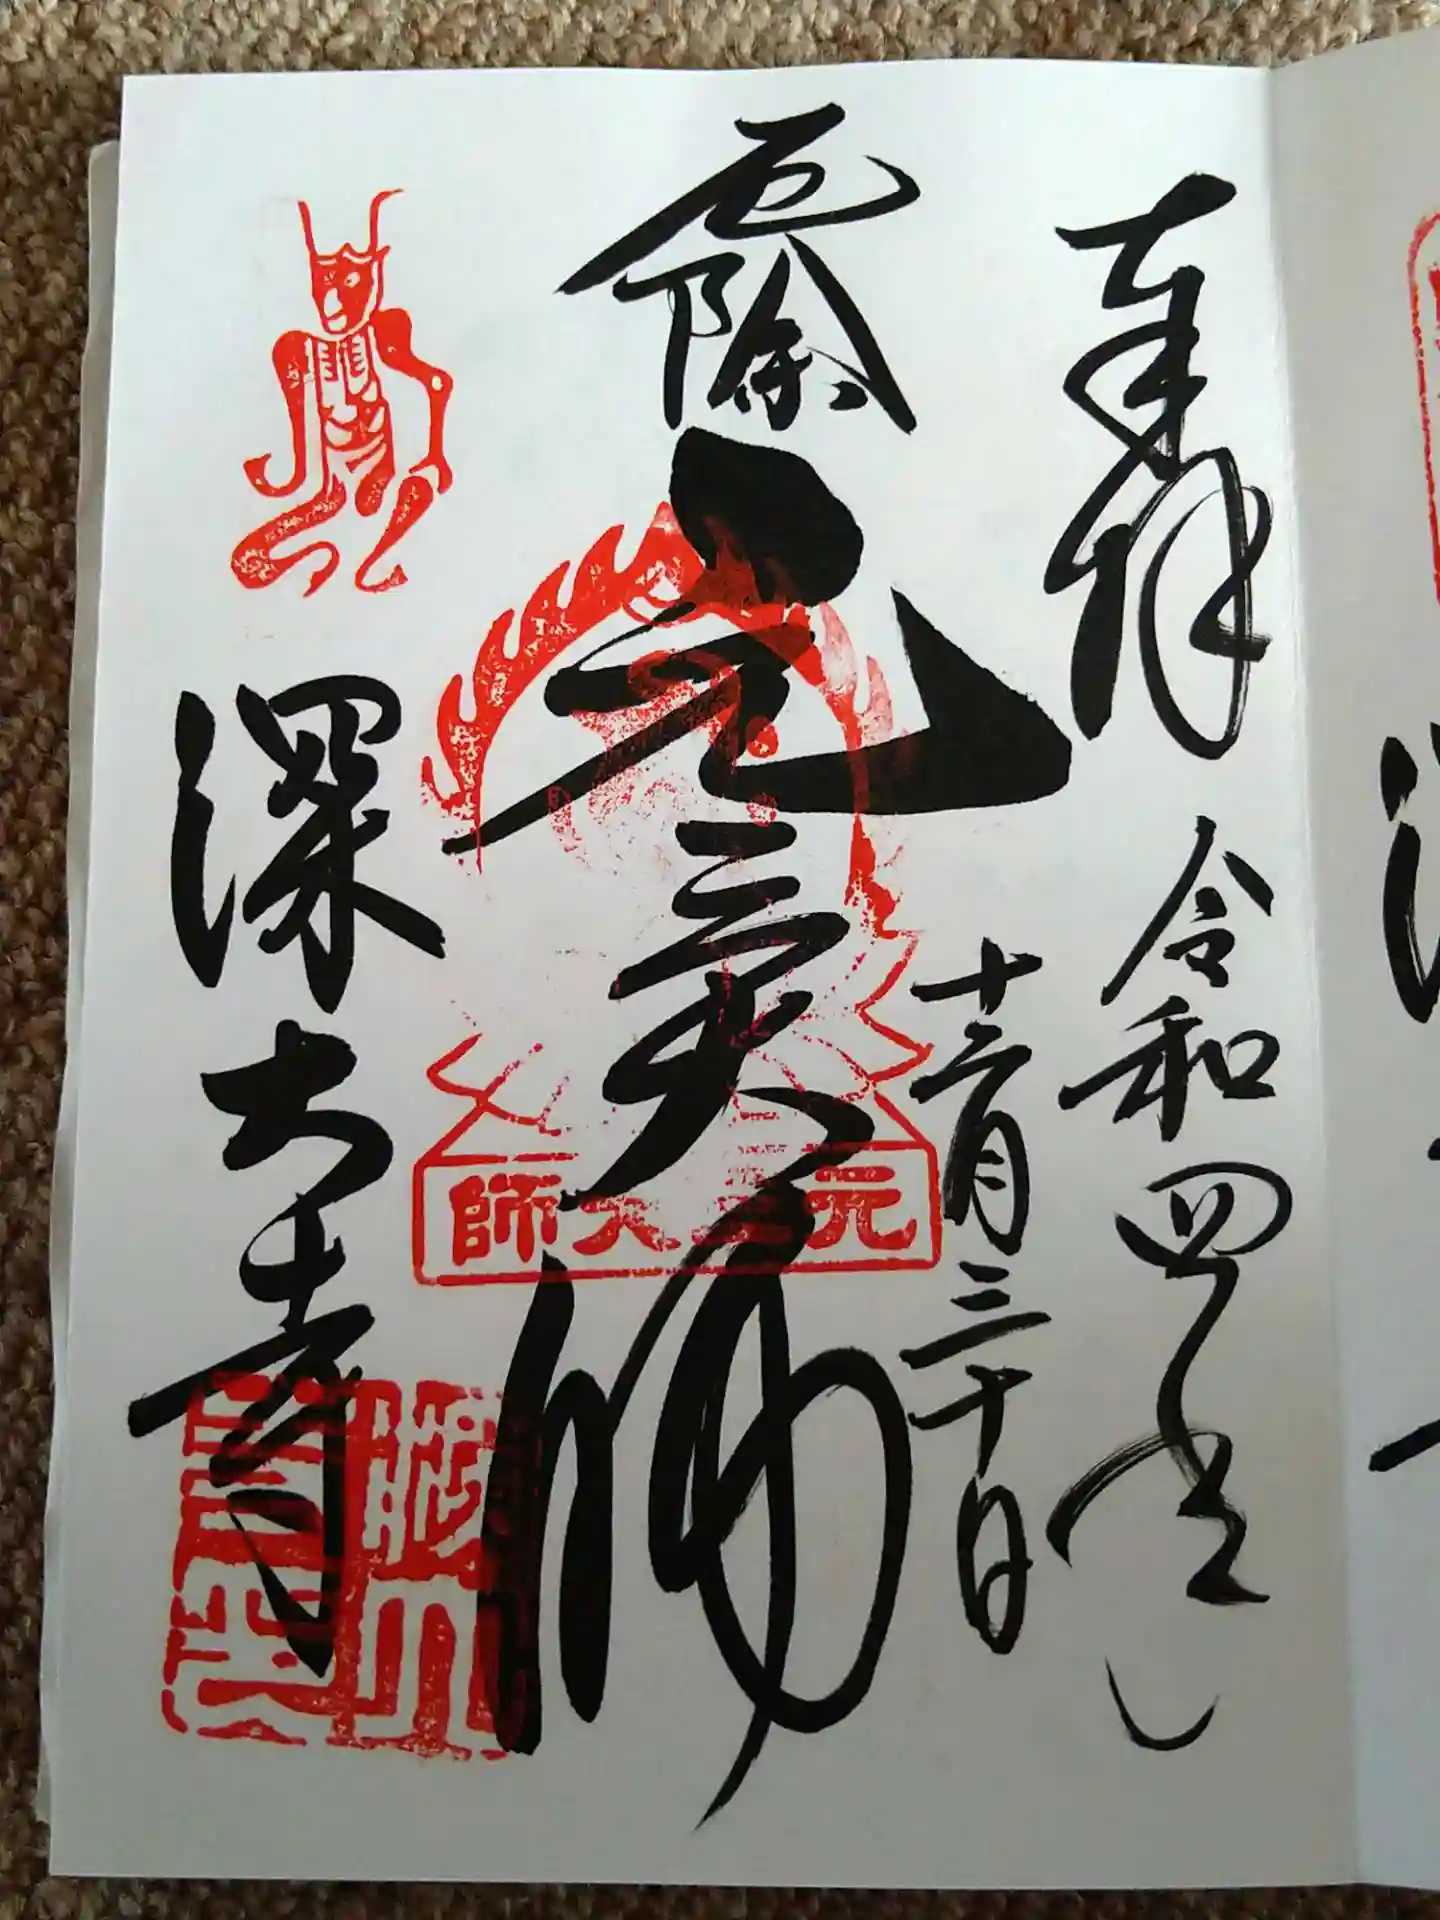 奉拝 令和四年
十二月三十日
厄除 元三大師
元三大師
深大寺